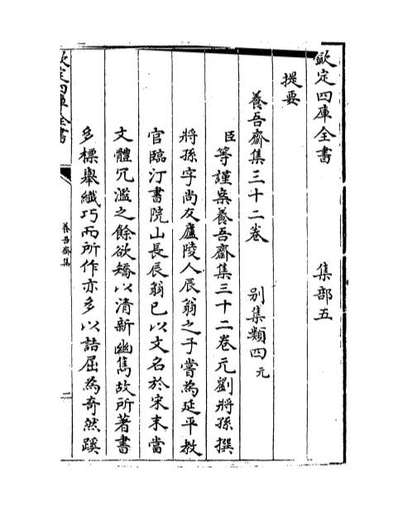 欽定四庫全書 集部五
提要
養吾齋集三十二卷 別集類四元
臣等謹案養吾齋集三十二卷元劉將孫撰
將孫字尚友廬陵人辰翁之子嘗為延平教
官臨汀書院山長辰翁已以文名於宋末當
文體冗濫之餘欲矯以清新幽雋故所著書
多標舉纖巧而所作亦多以詰屈為奇然蹊
欽定四庫全書
養吾齋集
二